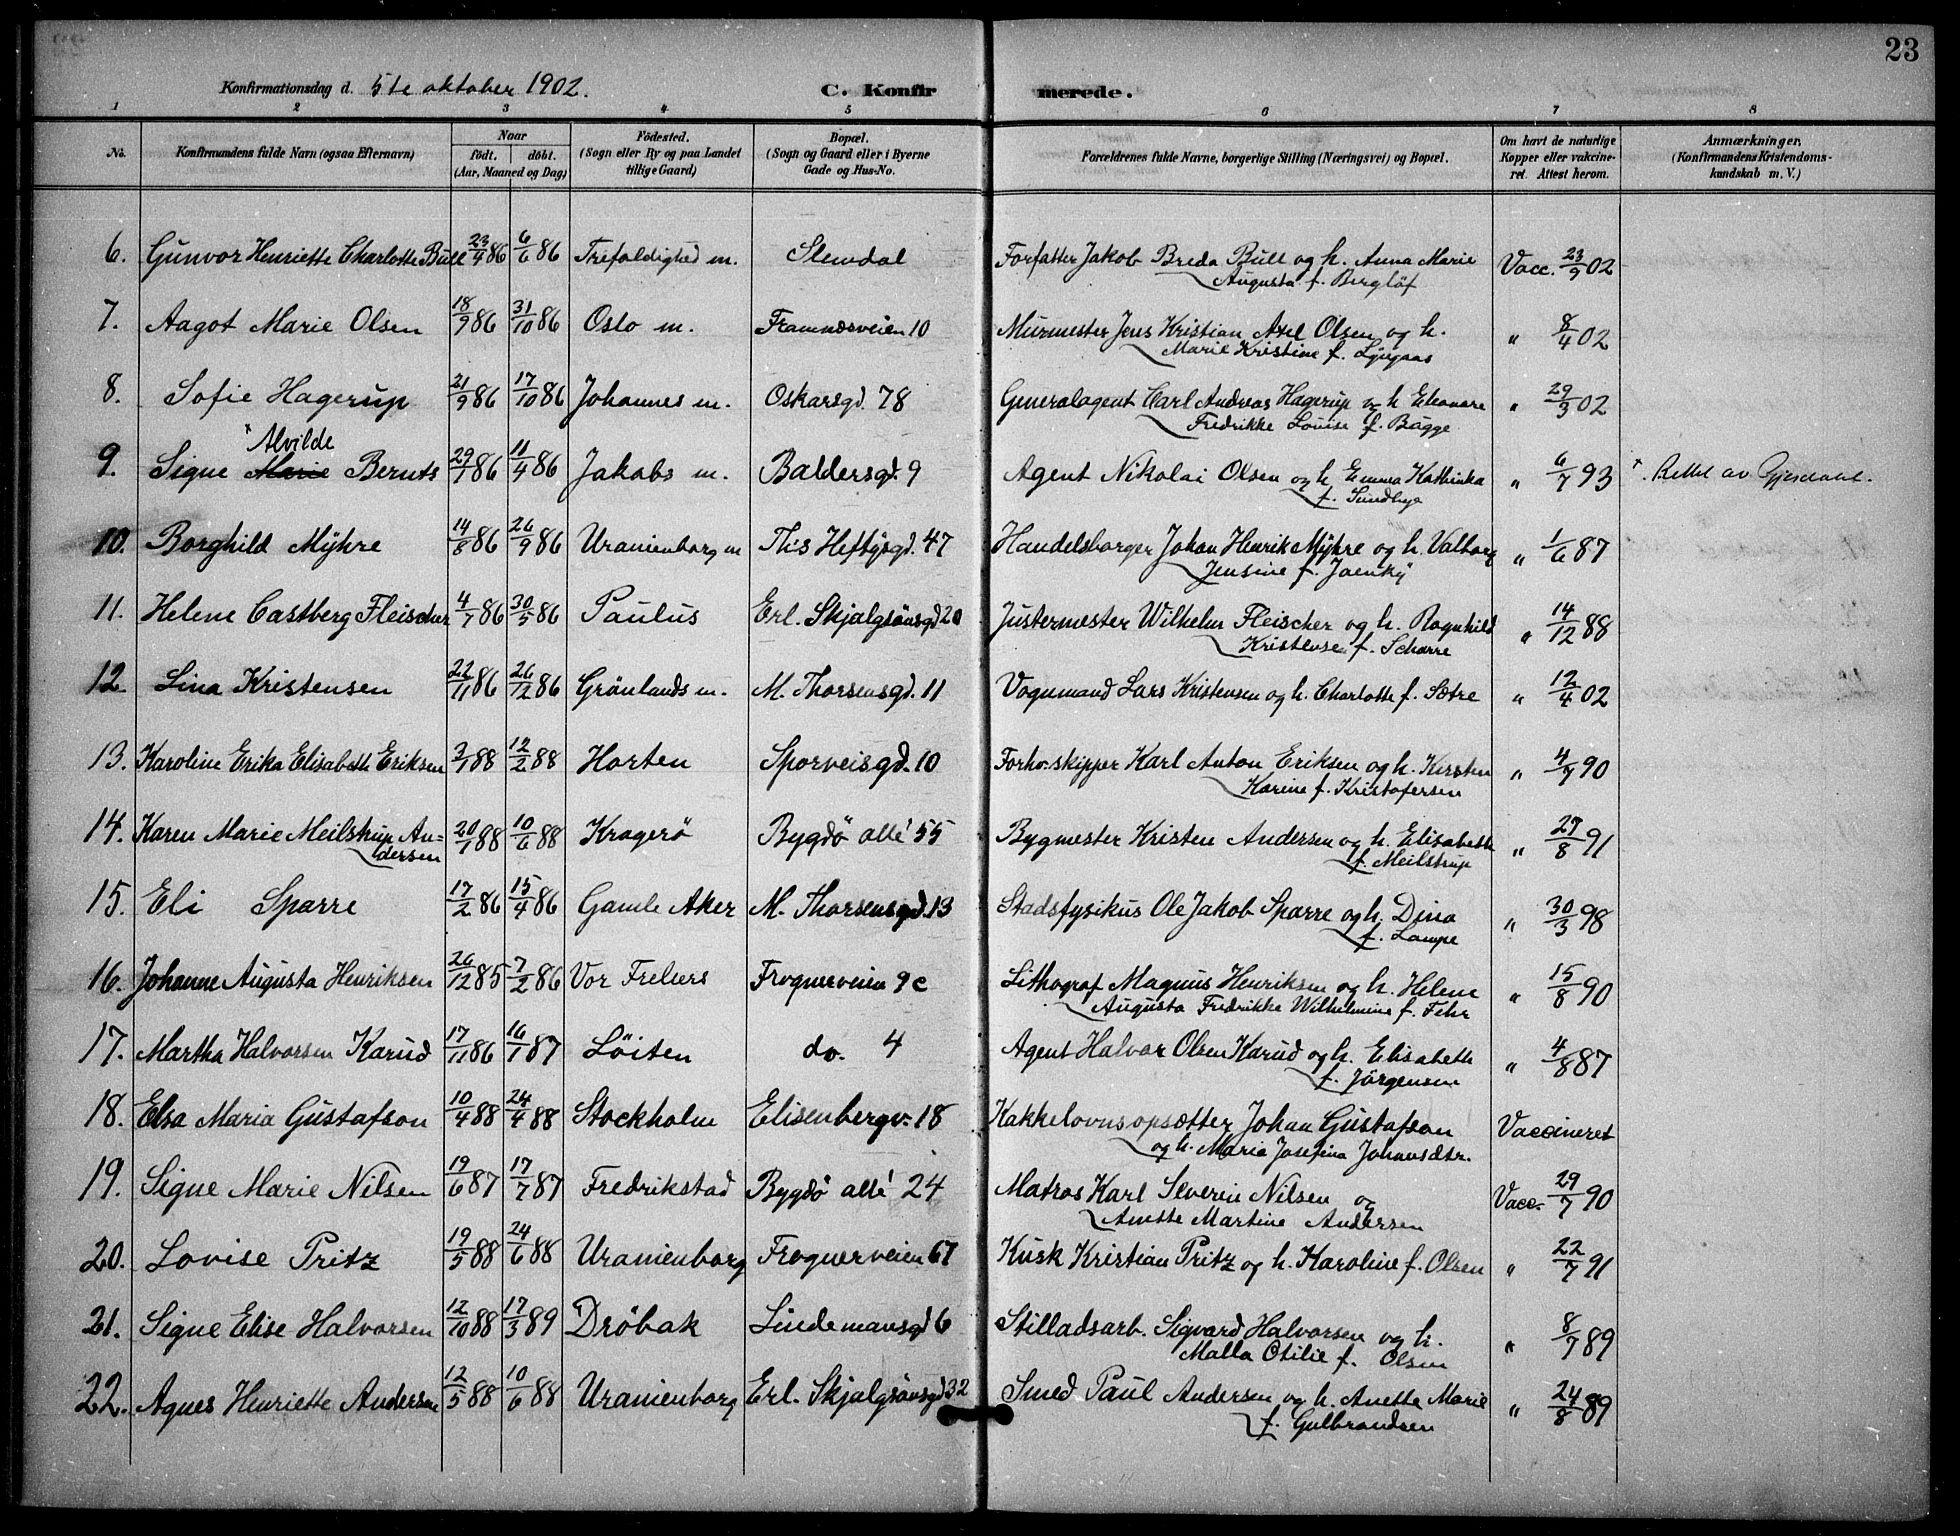 23
Konfirmationsdag d. 5te oktober 1902. C. Konfirmerede.
1 2 3 4 5 6 7 8
No. Konfirmandens fulde Navn (ogsaa Efternavn) Naar født. døbt. (Aar, Maaned og Dag) Fødested. (Sogn eller By og paa Landet tillige Gaard) Bopæl. (Sogn og Gaard eller i Byerne Gade og Hus-No. Forældrenes fulde Navne, borgerlige Stilling (Næringsvei) og Bopæl. Om havt de naturlige Kopper eller vakcineret. Attest herom. Anmærkninger. (Konfirmandens Kristendomskundskab m. V.)
6. Gunvor Henriette Charlotte Bull 23/4 86 6/6 86 Trefoldighed m. Slemdal Forfatter Jakob Breda Bull og h. Anna Marie Vacc. 23/9 02
Augusta f. Berglöf
7. Aagot Marie Olsen 18/9 86 31/10 86 Oslo m. Framnæsveien 10 Murmester Jens Kristian Axel Olsen og h. " 8/4 02
Marie Kristine f. Lyngaas
8. Sofie Hagerup 21/9 86 17/10 86 Johannes m. Oskarsgd. 78 Generalagent Carl Andreas Hagerup og h Eleonore " 29/3 02
Fredrikke Louise f. Bugge
× Alvilde
9. Signe ~~Marie~~ Bernts 29/1 86 11/4 86 Jakobs m. Baldersgd. 9 Agent Nikolai Olsen og h Emma Kathinka " 6/7 93 ×. Rettet av Gjesdahl.
f. Sundbye
10. Borghild Myhre 14/8 86 26/9 86 Uranienborg m Ths Heftysgd. 47 Handelsborger Johan Henrik Myhre og h. Valborg " 1/6 87
Jensine f.
11. Helene Castberg Fleischer 4/7 86 30/5 86 Paulus Erl. Skjalgsönsgd 20 Justermester Wilhelm Fleischer og h. Ragnhild " 14/12 88
Kristense f. Scharre
12. Lina Kristensen 22/11 86 26/12 86 Grönlands m. M. Thorsensgd. 11 Vognmand Lars Kristensen og h. Charlotte f. Sætre " 12/4 02
13. Karoline Erika Elisabeth Eriksen 3/1 88 12/2 88 Horten Sporveisgd. 10 Forh. skipper Karl Anton Eriksen og h. Kirsten " 4/7 90
Karine f. Kristofersen
14. Karen Marie Meilstrup An- 20/1 88 10/6 88 Kragerö Bygdö allé 55 Bygmester Kristen Andersen og h. Elisabeth " 27/8 91
dersen f. Meilstrup
15. Eli Sparre 17/2 86 15/4 86 Gamle Aker M. Thorsensgd. 13 Stadsfysikus Ole Jakob Sparre og h. Dina " 30/3 98
f. Lampe
16. Johanne Augusta Henriksen 26/12 85 7/2 86 Vor Frelsers Frognerveien 9c Lithograf Magnus Henriksen og h. Helene " 15/8 90
Augusta Fredrikke Wilhelmine f. Fehr
17. Martha Halvorsen Karud 17/11 86 16/1 87 Löiten do. 4 Agent Halvor Olsen Karud og h. Elisabeth " 4/8 87
f. Jörgensen
18. Elsa Maria Gustafson 10/4 88 24/4 88 Stockholm Elisenbergv. 18 Kakkelovnsopsætter Johan Gustafson Vaccineret
og h. Maria Josefina Johansdtr.
19. Signe Marie Nilsen 19/6 87 17/7 87 Fredrikstad Bygdö allé 24 Matros Karl Severin Nilsen og Vacc. 29/7 90
Anette Martine Andersen
20. Lovise Pritz 19/5 88 24/6 88 Uranienborg Frognerveien 67 Kusk Kristian Pritz og h. Karoline f. Olsen " 22/7 91
21. Signe Elise Halvorsen 12/10 88 17/3 89 Dröbak Lindemansgd 6 Stilladsarb. Sigvard Halvorsen og h. " 8/7 89
Malla Otilie f. Olsen
22. Agnes Henriette Andersen 12/5 88 10/6 88 Uranienborg Erl. Skjalgsönsgd 32 Smed Paul Andersen og h. Anette Marie " 24/8 89
f. Gulbrandsen